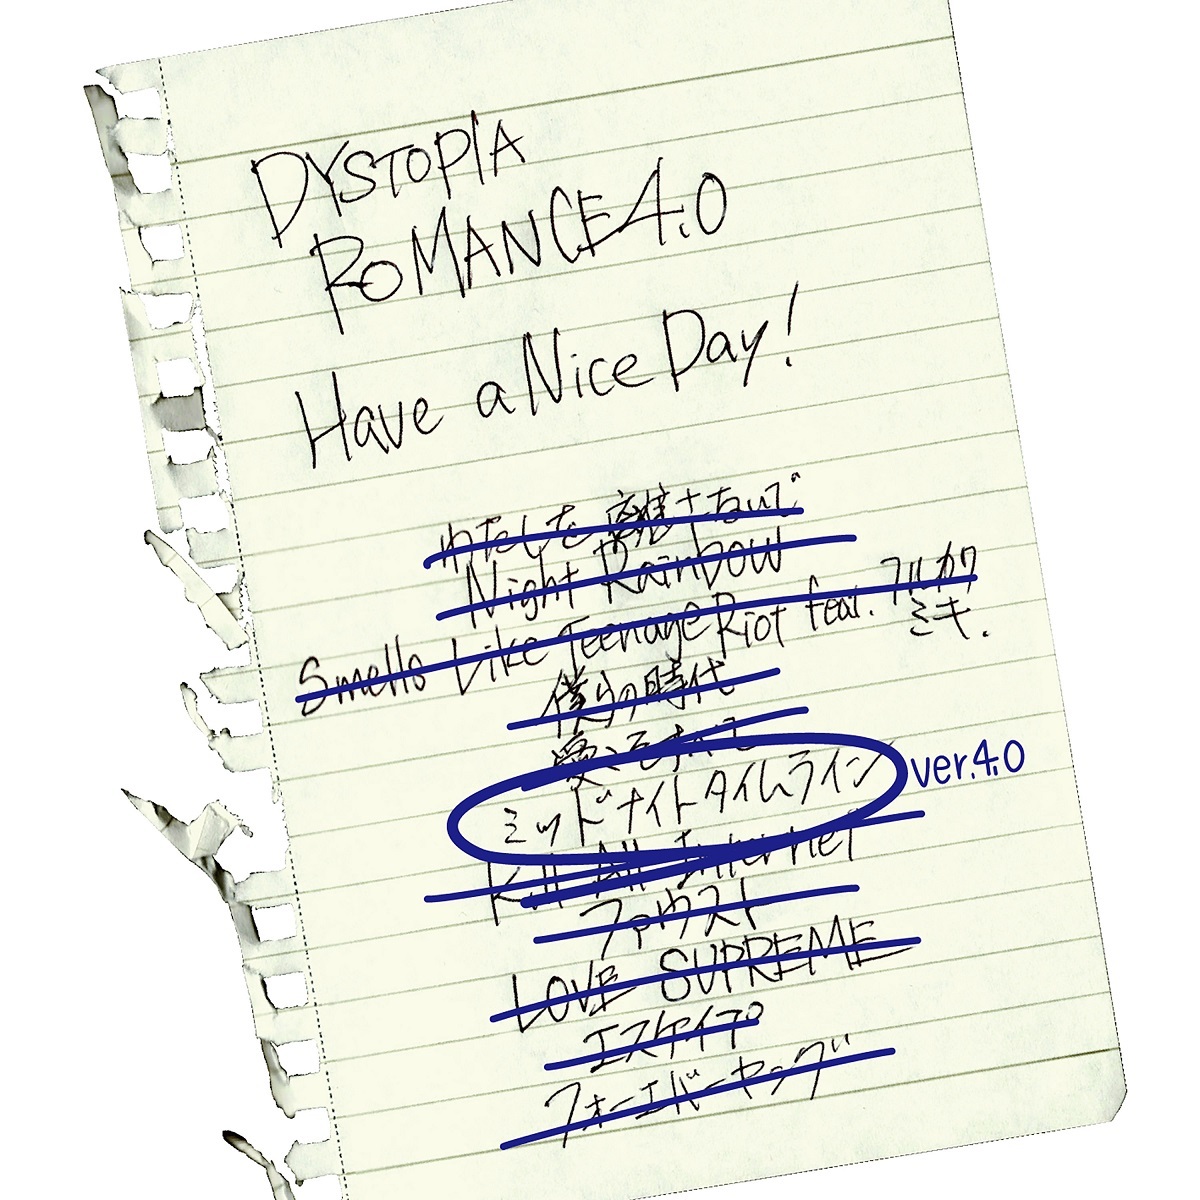 DYSTOPIA
ROMANCE 4.0
Have a Nice Day!
わたしを離さないで
Night Rainbow
Smells Like Teenage Riot feat. フルカワ
ミキ.
僕らの時代
愛こそすべて
ミッドナイトタイムライン ver.4.0
Kill All Internet
ファウスト
LOVE SUPREME
エスケイプ
フォーエバーヤング